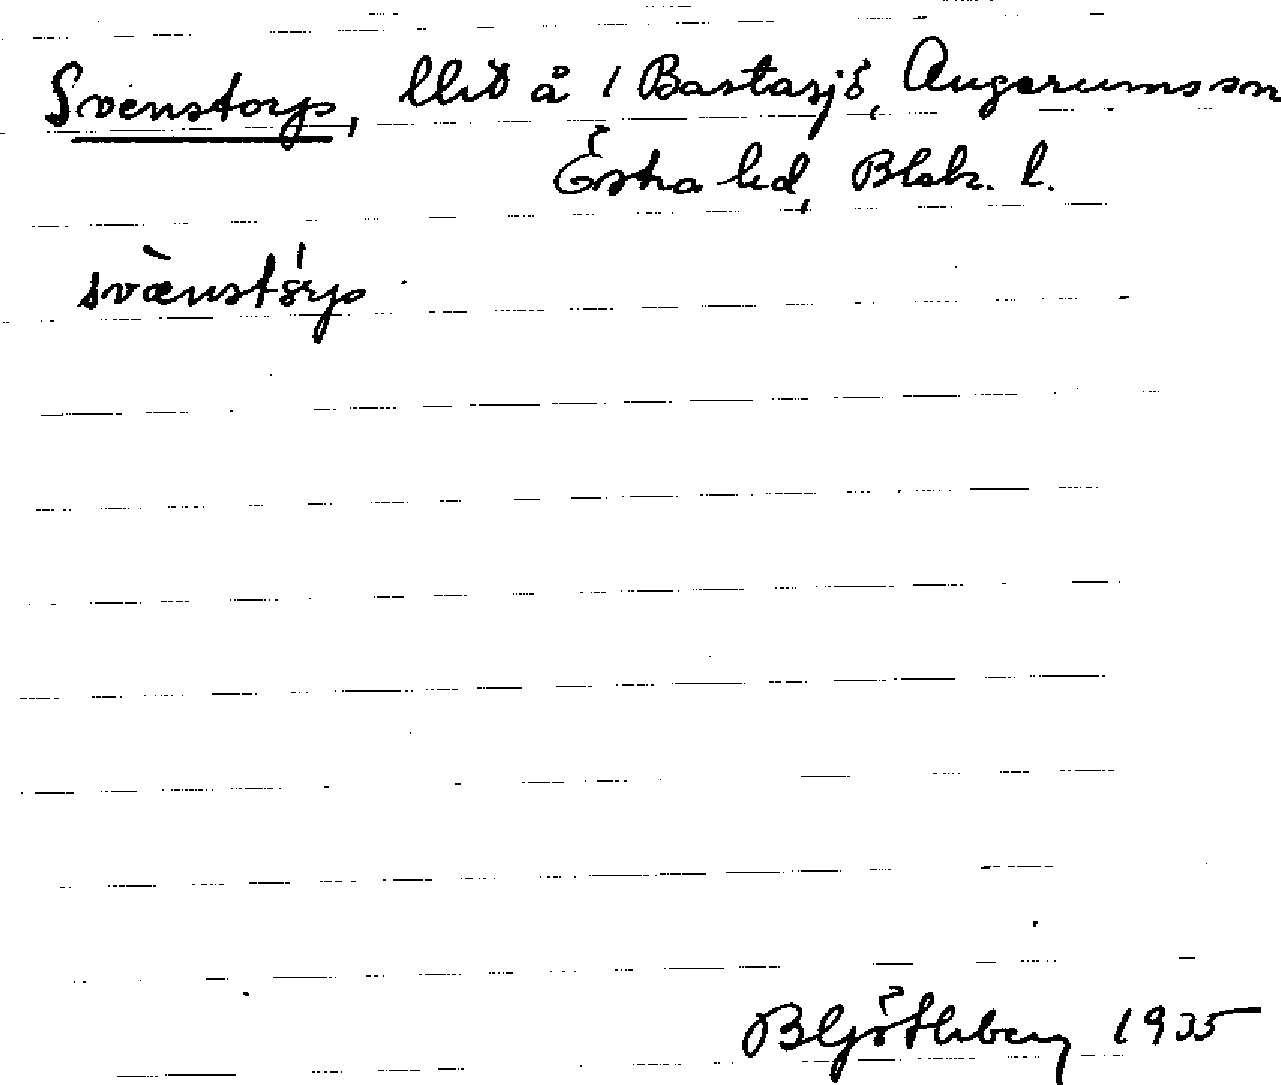 Svenstorp, llið å 1 Bastasjö, Augerums sn
Östra hd, Blek. l.
svænstörp
B Göthberg 1935